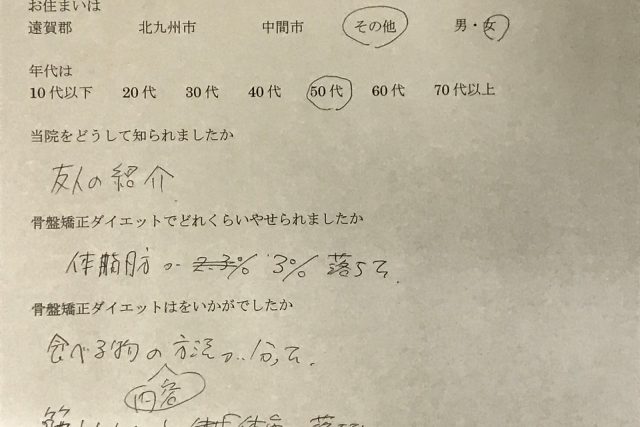 お住まいは
遠賀郡 北九州市 中間市 その他 男・女
年代は
10代以下 20代 30代 40代 50代 60代 70代以上
当院をどうして知られましたか
友人の紹介
骨盤矯正ダイエットでどれくらいやせられましたか
体脂肪が 2.3% 3% 落ちて、
骨盤矯正ダイエットはをいかがでしたか
食べる物の方法が分って、
内容